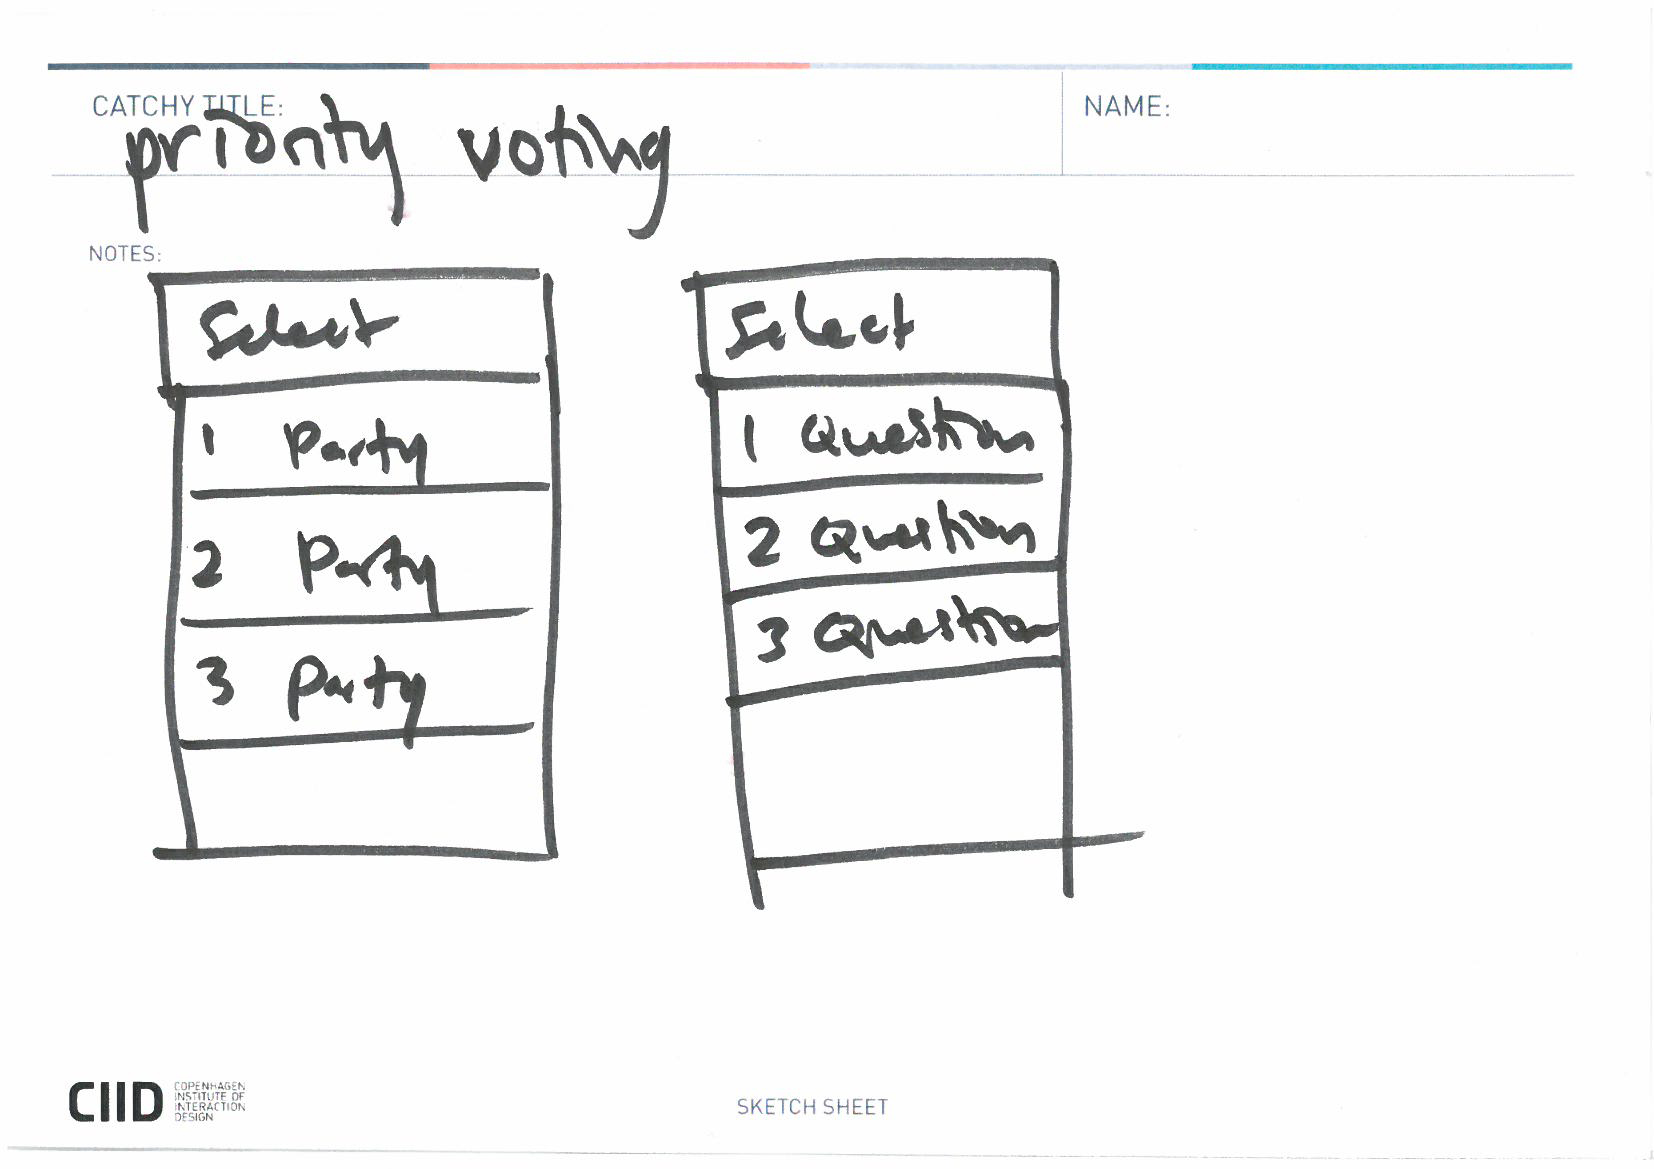 CATCHY TITLE:
priority voting
NAME:
NOTES:
Select
1 Party
2 Party
3 Party
Select
1 Question
2 Question
3 Question
CIID
COPENHAGEN
INSTITUTE OF
INTERACTION
DESIGN
SKETCH SHEET